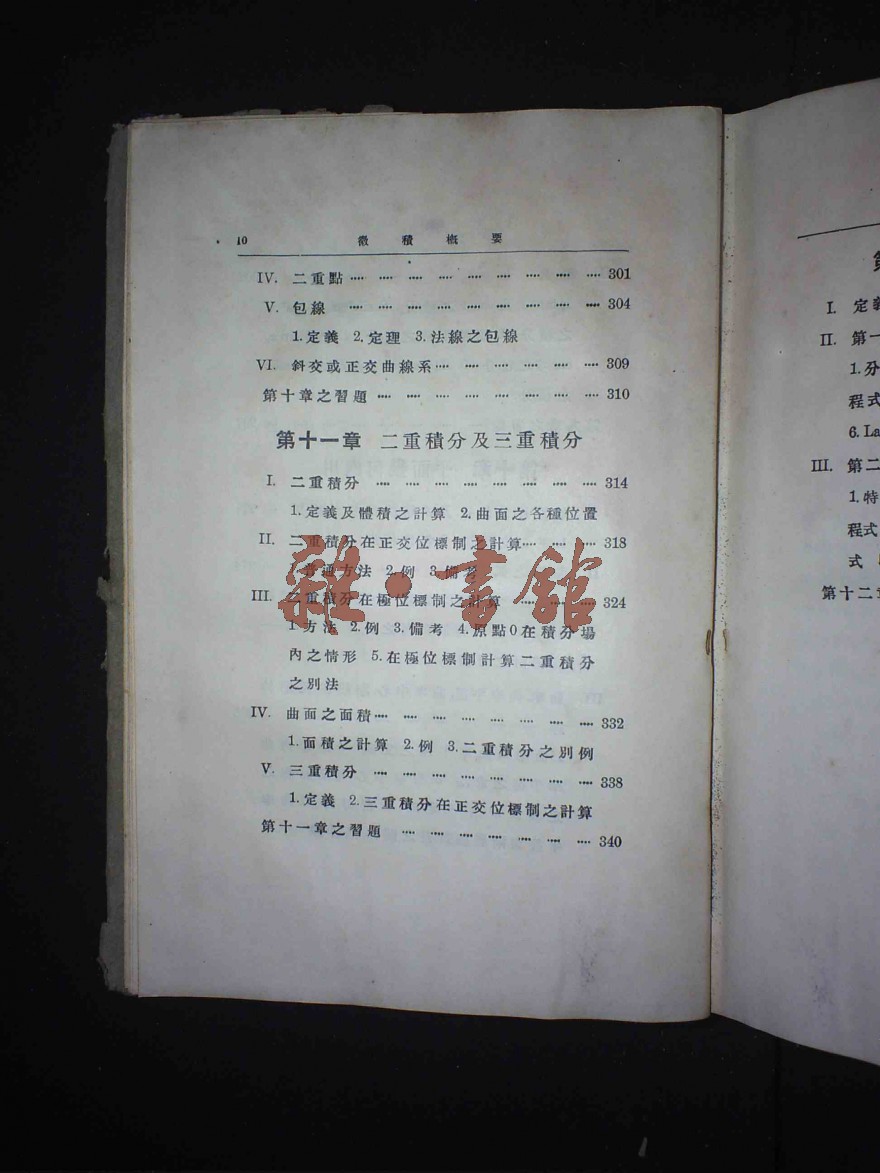 10 微積概要
IV. 二重點 ………… 301
V. 包線 ………… 304
1.定義 2.定理 3.法線之包線
VI. 斜交或正交曲線系 ………… 309
第十章之習題 ………… 310
第十一章 二重積分及三重積分
I. 二重積分 ………… 314
1.定義及體積之計算 2.曲面之各種位置
II. 二重積分在正交位標制之計算 ………… 318
1.普通方法 2.例 3.備考
III. 二重積分在極位標制之計算 ………… 324
1.方法 2.例 3.備考 4.原點0在積分場
內之情形 5.在極位標制計算二重積分
之別法
IV. 曲面之面積 ………… 332
1.面積之計算 2.例 3.二重積分之別例
V. 三重積分 ………… 338
1.定義 2.三重積分在正交位標制之計算
第十一章之習題 ………… 340
雜·書館
I. 定
II. 第一
1.分
程式
6. La
III. 第二
1.特
程式
式
第十二